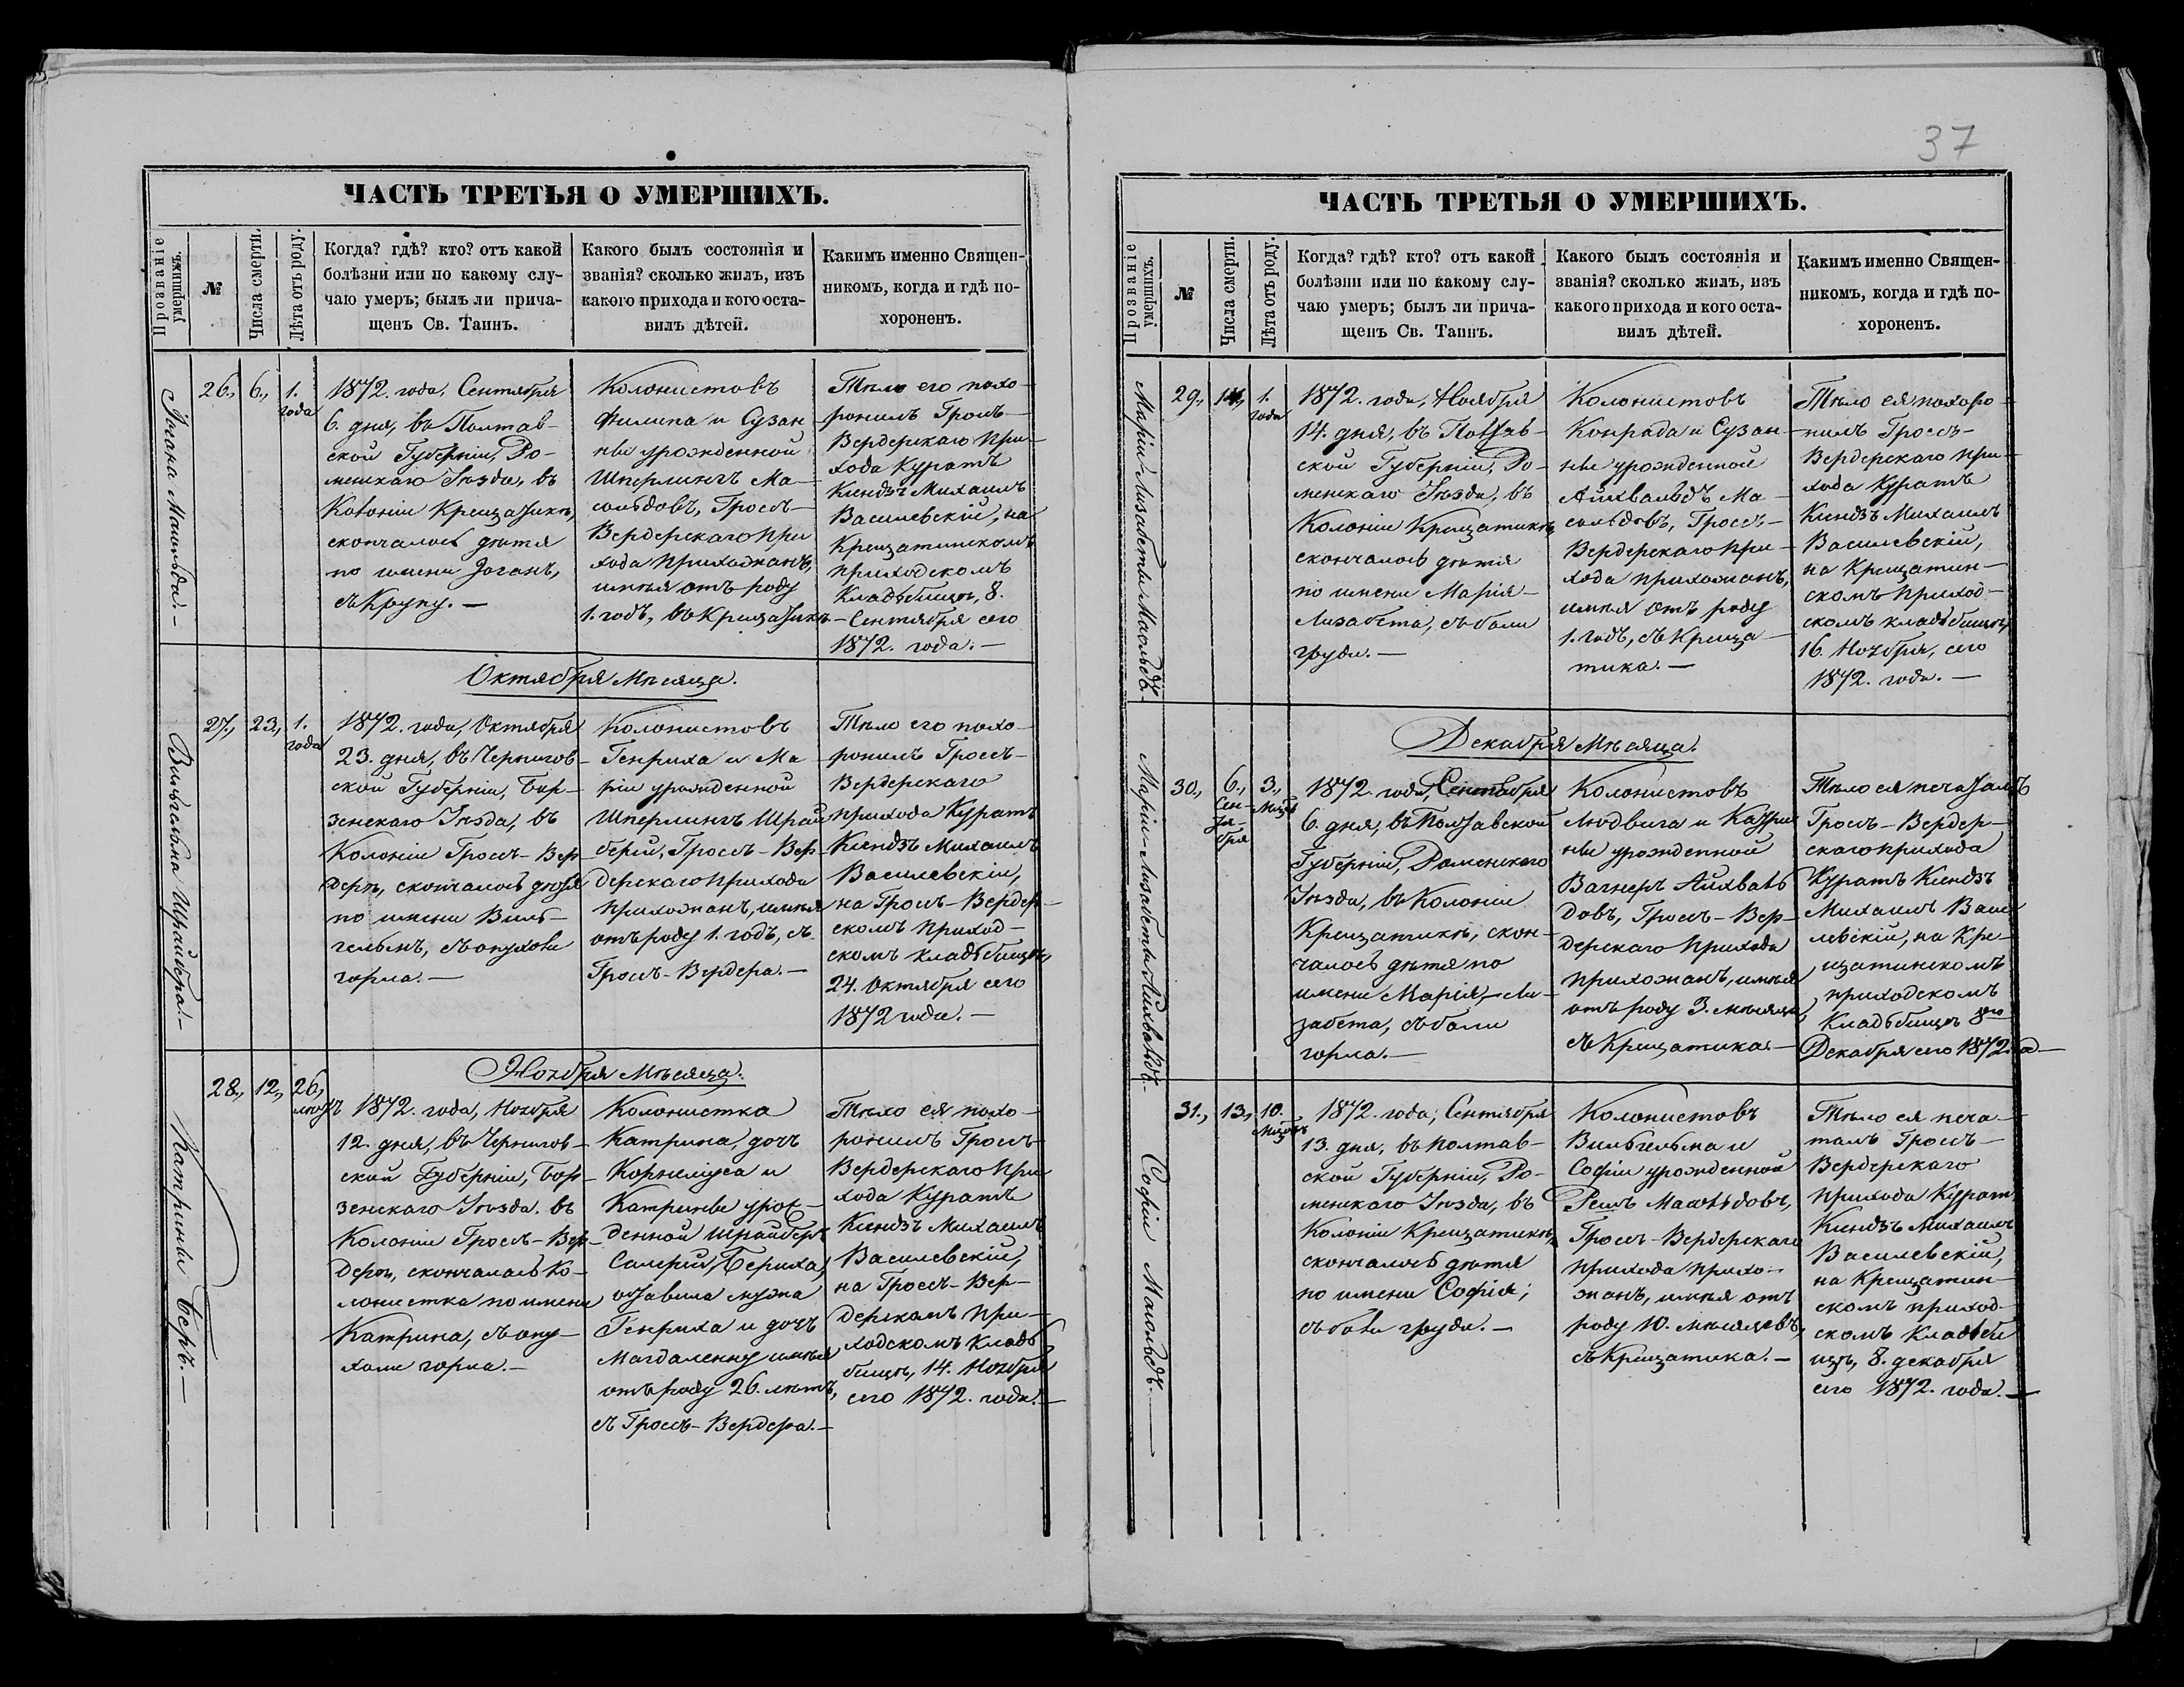 37
ЧАСТЬ ТРЕТЬЯ О УМЕРШИХЪ.
Прозваніе умершихъ.
№
Числа смерти.
Лѣта отъ роду.
Когда? гдѣ? кто? отъ какой
болѣзни или по какому слу-
чаю умеръ; былъ ли прича-
щенъ Св. Таинъ.
Какого былъ состоянія и
званія? сколько жилъ, изъ
какого прихода и кого оста-
вилъ дѣтей.
Какимъ именно Священ-
никомъ, когда и гдѣ по-
хороненъ.
Іогана Масольда.
26.
6.
1.
года
1872. года, Сентября
6. дня, въ Полтав-
ской Губерніи, Ро-
менскаго Уѣзда, въ
Колоніи Крещатикѣ,
скончалось дитя
по имени Іоганъ,
съ Крупу.
Колонистовъ
Филипа и Сузан-
ны урожденной
Шперлингъ Ма-
сольдовъ, Гросъ-
Вердерскаго при
хода прихожанъ,
имѣя отъ роду
1. годъ, въ Крещатикѣ
Тѣло его похо-
ронилъ Гросъ-
Вердерскаго при-
хода Куратъ
Ксендзъ Михаилъ
Василевскій, на
Крещатинскомъ
приходскомъ
Кладбищѣ, 8.
Сентября сего
1872. года.
Октября Мѣсяца.
Вильгельма Шрайбера.
27.
23.
1.
года
1872. года, Октября
23. дня, въ Чернигов-
ской Губерніи, Бор-
зенскаго Уѣзда, въ
Колоніи Гросъ-Вер-
дерѣ, скончалось дитя
по имени Виль-
гельмъ, съ опухоли
горла.
Колонистовъ
Генриха и Ма-
ріи урожденной
Шперлингъ Шрай
берій, Гросъ-Вер-
дерскаго прихода
прихожанъ, имѣя
отъ роду 1. годъ, съ
Гросъ-Вердера.
Тѣло его похо-
ронилъ Гросъ-
Вердерскаго
прихода Куратъ
Ксендзъ Михаилъ
Василевскій,
на Гросъ-Вердер-
скомъ приход-
скомъ кладбищѣ,
24. Октября сего
1872 года.
Ноября Мѣсяца.
Катрины Беръ.
28.
12.
26.
лѣтъ
1872. года, Ноября
12. дня, въ Чернигов-
ской Губерніи, Бор-
зенскаго Уѣзда. въ
Колоніи Гросъ-Вер-
дерѣ, скончалась Ко-
лонистка по имени
Катрина, съ опу-
холи горла.
Колонистка
Катрина, дочъ
Корнеліуса и
Катрины урож-
денной Шрайберъ
оставила мужа
Генриха и дочъ
Магдаленну имѣя
отъ роду 26. лѣтъ,
съ Гросъ-Вердера.
Тѣло ея похо-
ронилъ Гросъ-
Вердерскаго при
хода Куратъ
Ксендзъ Михаилъ
Василевскій,
на Гросъ-Вер-
дерскомъ при-
ходскомъ Клад
бищѣ, 14. Ноября
сего 1872. года.
ЧАСТЬ ТРЕТЬЯ О УМЕРШИХЪ.
Прозваніе умершихъ.
№
Числа смерти.
Лѣта отъ роду.
Когда? гдѣ? кто? отъ какой
болѣзни или по какому слу-
чаю умеръ; былъ ли прича-
щенъ Св. Таинъ.
Какого былъ состоянія и
званія? сколько жилъ, изъ
какого прихода и кого оста-
вилъ дѣтей.
Какимъ именно Священ-
никомъ, когда и гдѣ по-
хороненъ.
Маріи-Лизабеты Масольдъ.
29.
14.
1.
года
1872. года, Ноября
14. дня, въ Полтав-
ской Губерніи, Ро-
менскаго Уѣзда, въ
Колоніи Крещатикѣ,
скончалось дитя
по имени Марія-
Лизабета, съ боли
груди.
Колонистовъ
Конрада и Сузан-
ны урожденной
Айхвальдъ Ма-
сольдовъ, Гросъ-
Вердерскаго при-
хода прихожанъ,
имѣя отъ роду
1. годъ, съ Креща-
тика.
Тѣло ея похоро-
нилъ Гросъ-
Вердерскаго при-
хода Куратъ
Ксендзъ Михаилъ
Василевскій,
на Крещатин-
скомъ приход-
скомъ кладбищѣ,
16. Ноября, сего
1872. года.
Декабря Мѣсяца.
Маріи-Лизабеты Айхвальдъ.
30.
6.
Сен-
тя-
бря
3.
Мѣсяц
1872. года, Сентября
6. дня, въ Полтавской
Губерніи, Роменскаго
Уѣзда, въ Колоніи
Крещатикѣ, скон-
чалось дитя по
имени Марія-Ли-
забета, съ боли
горла.
Колонистовъ
Людвига и Катри
ны урожденной
Вагнеръ Айхваль
довъ, Гросъ-Вер-
дерскаго прихода
прихожанъ, имѣя
отъ роду 3. мѣсяца,
съ Крещатика.
Тѣло ея печаталъ
Гросъ-Вердер-
скаго прихода
Куратъ Ксендзъ
Михаилъ Васи
левскій, на Кре-
щатинскомъ
приходскомъ
Кладбищѣ 8го
Декабря сего 1872 года
Софіи Масольдъ.
31.
13.
10.
1872. года, Сентября
13. дня, въ Полтав-
ской Губерніи, Ро-
менскаго Уѣзда, въ
Колоніи Крещатикѣ,
скончалось дитя
по имени Софія;
съ боли груди.
Колонистовъ
Вильгельма и
Софіи урожденной
Масольдовъ,
Гросъ-Вердерскаго
прихода прихо-
жанъ, имѣя отъ
роду 10. мѣсяцевъ,
съ Крещатика.
Тѣло ея печа-
талъ Гросъ-
Вердерскаго
прихода Куратъ
Ксендзъ Михаилъ
Василевскій,
на Крещатин-
скомъ приход-
скомъ Кладби
щѣ, 8. декабря
сего 1872. года.